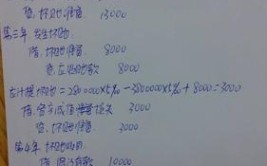 贷:坏账准备 13000
第三年 发生坏账
借:坏账准备 8000
贷:应收账款 8000
应计提坏账=2800000×5‰-3800000×5‰+8000=3000
借:资产减值损失 3000
贷:坏账准备 3000
第4年 坏账收回
借:应收账款 10000